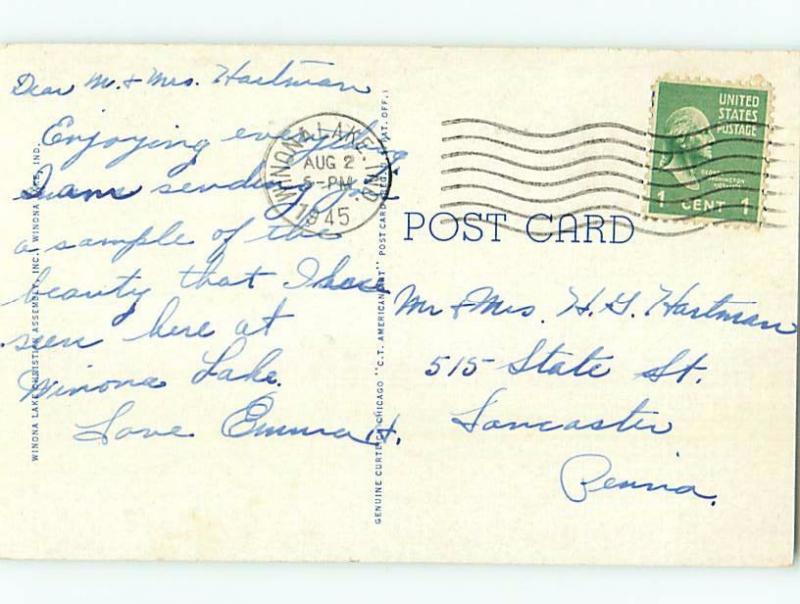 Dear Mr. & Mrs. Hartman
Enjoying everything
I am sending you
a sample of the
beauty that I have
seen here at
Winona Lake.
Love Emma H.
WINONA LAKE CHRISTIAN ASSEMBLY, INC., WINONA LAKE, IND.
GENUINE CURTEICH-CHICAGO "C.T. AMERICAN ART" POST CARD (REG. U.S. PAT. OFF.)
WINONA LAKE, IND.
AUG 2
5-PM
1945
UNITED
STATES
POSTAGE
1 CENT 1
POST CARD
Mr & Mrs. H. G. Hartman
515 State St.
Lancaster
Penna.